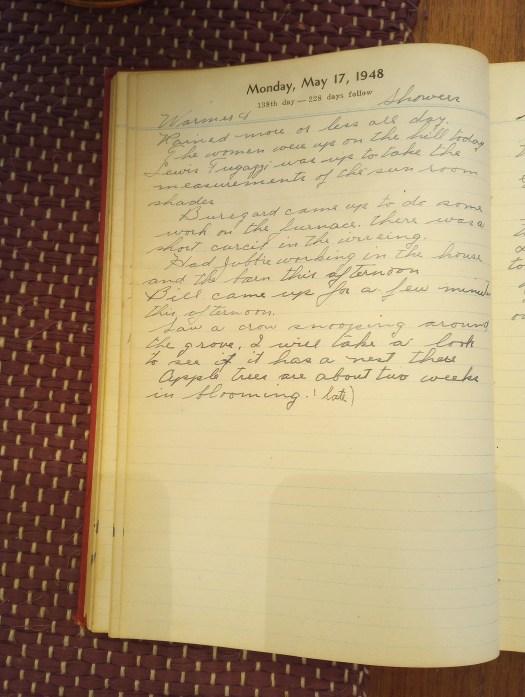 Monday, May 17, 1948
138th day — 228 days follow
Warmer & Showers
Rained more or less all day.
The women were up on the hill today
Lewis Tugazzi was up to take the
measurements of the sun room
shades
Buregard came up to do some
work on the furnace. there was a
short curcit in the wireing.
Had Jubbie working in the house
and the barn this afternoon
Bill came up for a few minutes
this afternoon.
Saw a crow snooping around
the grove. I will take a look
to see if it has a nest there
Apple trees are about two weeks
in blooming. (late)